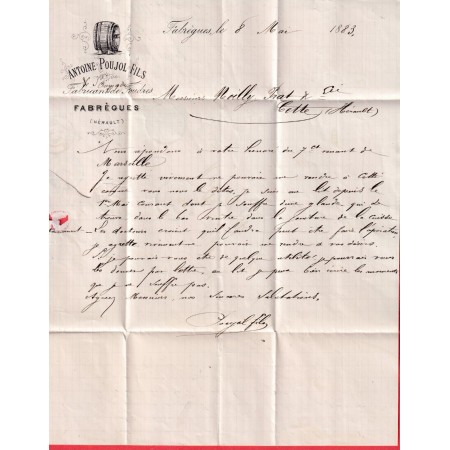 Fabrègues, le 8 Mai 1883.
ANTOINE POUJOL FILS
Fabricant de Foudres
FABRÈGUES
(HÉRAULT)
Messieurs Noilly Prat & Cie
Cette (Hérault)
Nous répondons à votre honoré du 7 ct venant de
Marseille
Je regrette vivement ne pouvoir me rendre à Cette
comme vous nous le dites, je suis au lit depuis le
1er Mai courant dont je souffre d'une glande qui se
trouve dans le bas ventre dans la jointure de la cuisse
Les docteurs croient qu'il faudra peut être faire l'opération
je regrette vivement ne pouvoir me rendre à vos désirs.
Si je pouvais vous être de quelque utilité je pourrais vous
les donner par lettre, au lit je peux bien écrire les moments
que je ne souffre pas.
Agréez Messieurs, nos Sincères Salutations.
Poujol fils